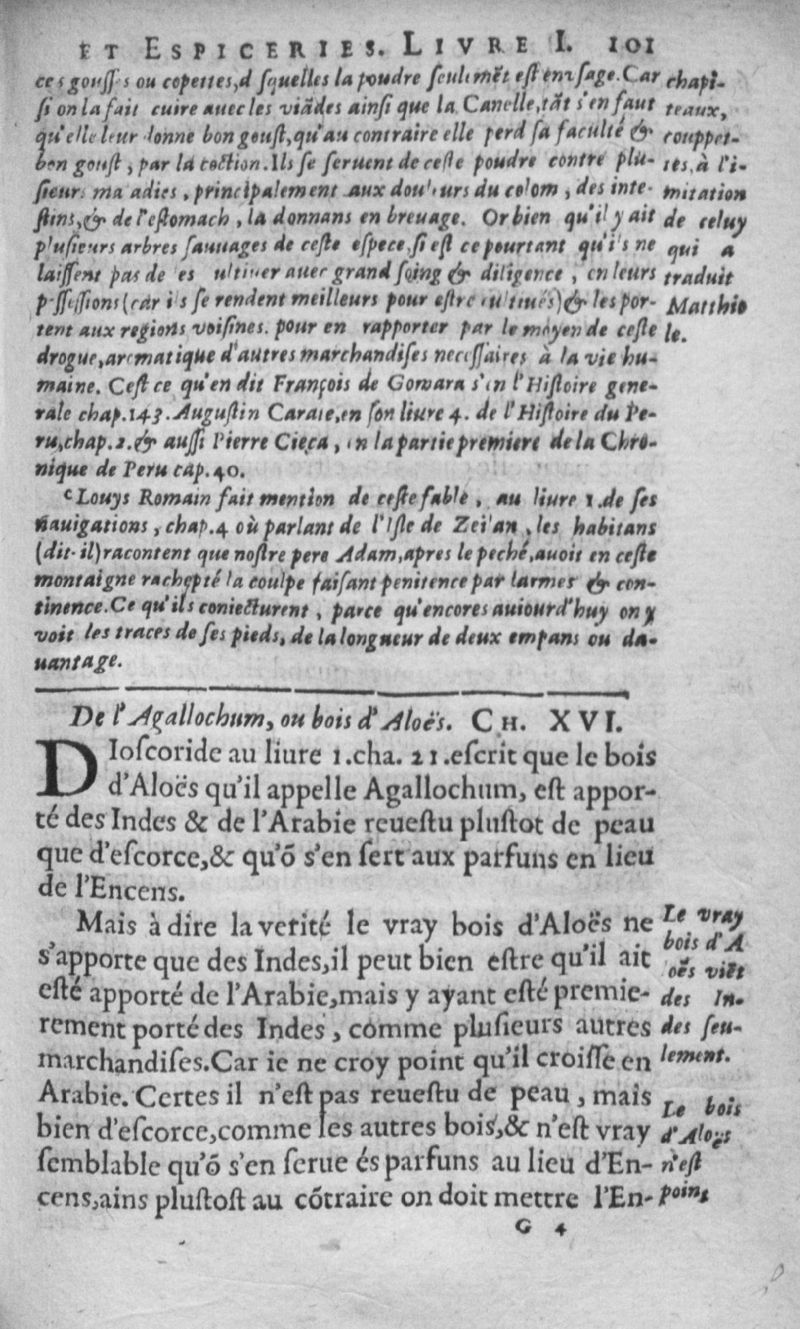 ET ESPICERIES. LIVRE I. 101
ces gouſſes ou copettes, deſquelles la poudre ſeulemēt eſt en vſage. Car
ſi on la fait cuire auec les viādes ainſi que la Canelle, tāt s'en faut
qu'elle leur donne bon gouſt, qu'au contraire elle perd ſa faculté &
bon gouſt, par la coction. Ils ſe ſeruent de ceſte poudre contre plu-
ſieurs maladies, principalement aux douleurs du colom, des inte-
ſtins, & de l'eſtomach, la donnans en breuage. Or bien qu'il y ait
pluſieurs arbres ſauuages de ceſte eſpece, ſi eſt ce pourtant qu'ils ne
laiſſent pas de les cultiuer auec grand ſoing & diligence, en leurs
poſſeſſions (car ils ſe rendent meilleurs pour eſtre cultiués) & les por-
tent aux regions voiſines. pour en rapporter par le moyen de ceſte
drogue, arematique d'autres marchandiſes neceſſaires à la vie hu-
maine. Ceſt ce qu'en dit François de Gomara s'en l'Hiſtoire gene-
rale chap. 143. Auguſtin Carate, en ſon liure 4. de l'Hiſtoire du Pe-
ru, chap. 2. & auſſi Pierre Cieça, en la partie premiere de la Chro-
nique de Peru cap. 40.
chapi-
teaux,
couppet-
tes, à l'i-
mitation
de celuy
qui a
traduit
Matthio
le.
c Louys Romain fait mention de ceſte fable, au liure 1. de ſes
nauigations, chap. 4 où parlant de l'Iſle de Zeilan, les habitans
(dit-il) racontent que noſtre pere Adam, apres le peché, auoit en ceſte
montaigne rachepté la coulpe faiſant penitence par larmes & con-
tinence. Ce qu'ils coniecturent, parce qu'encores auiourd'huy on y
voit les traces de ſes pieds, de la longueur de deux empans ou da-
uantage.
De l'Agallochum, ou bois d'Aloës. CH. XVI.
DIoſcoride au liure 1. cha. 21. eſcrit que le bois
d'Aloës qu'il appelle Agallochum, eſt appor-
té des Indes & de l'Arabie reueſtu pluſtot de peau
que d'eſcorce, & qu'ō s'en ſert aux parfuns en lieu
de l'Encens.
Mais à dire la verité le vray bois d'Aloës ne
s'apporte que des Indes, il peut bien eſtre qu'il ait
eſté apporté de l'Arabie, mais y ayant eſté premie-
rement porté des Indes, comme pluſieurs autres
marchandiſes. Car ie ne croy point qu'il croiſſe en
Arabie. Certes il n'eſt pas reueſtu de peau, mais
bien d'eſcorce, comme les autres bois, & n'eſt vray
ſemblable qu'ō s'en ſerue és parfuns au lieu d'En-
cens, ains pluſtoſt au cōtraire on doit mettre l'En-
Le vray
bois d'A
oēs viēt
des In-
des ſeu-
lement.
Le bois
d'Aloys
n'eſt
point
G 4